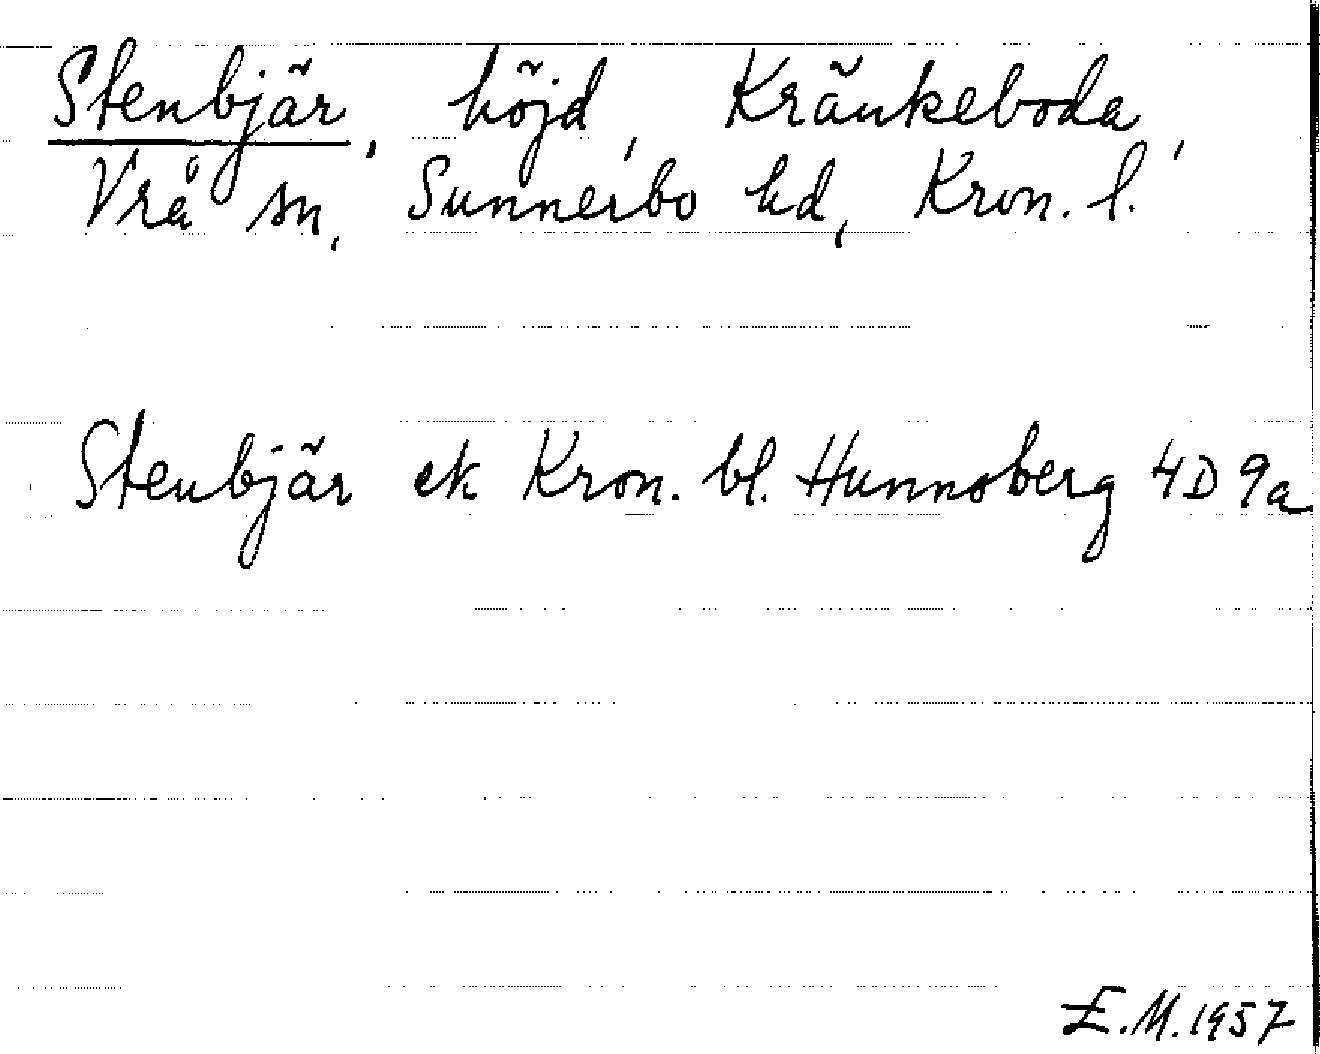 Stenbjär, höjd, Kränkeboda,
Vrå sn, Sunnerbo hd, Kron. l.
Stenbjär ek Kron. bl. Hunnsberg 4D 9a
E.M. 1957